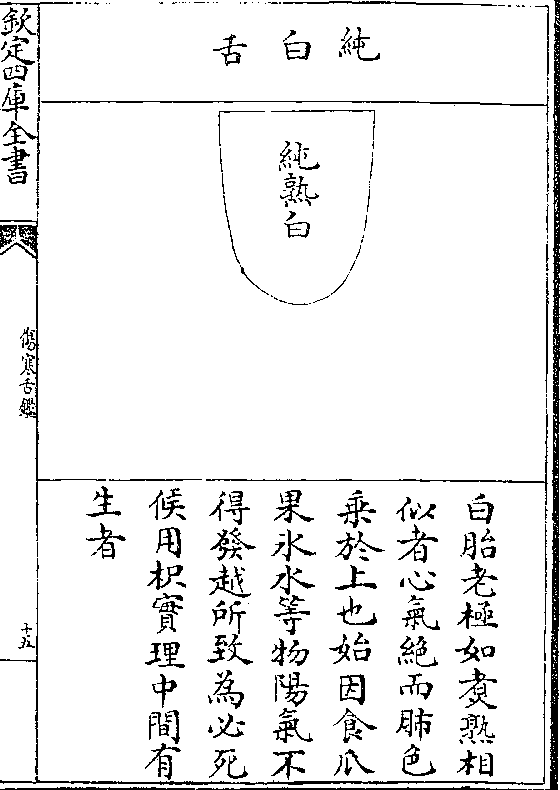 純白舌
純熟白
白胎老極如煑熟相
似者心氣絶而肺色
乘於上也始因食瓜
果氷水等物陽氣不
得發越所致為必死
候用枳實理中間有
生者
欽定四庫全書
傷寒舌鑑
十五